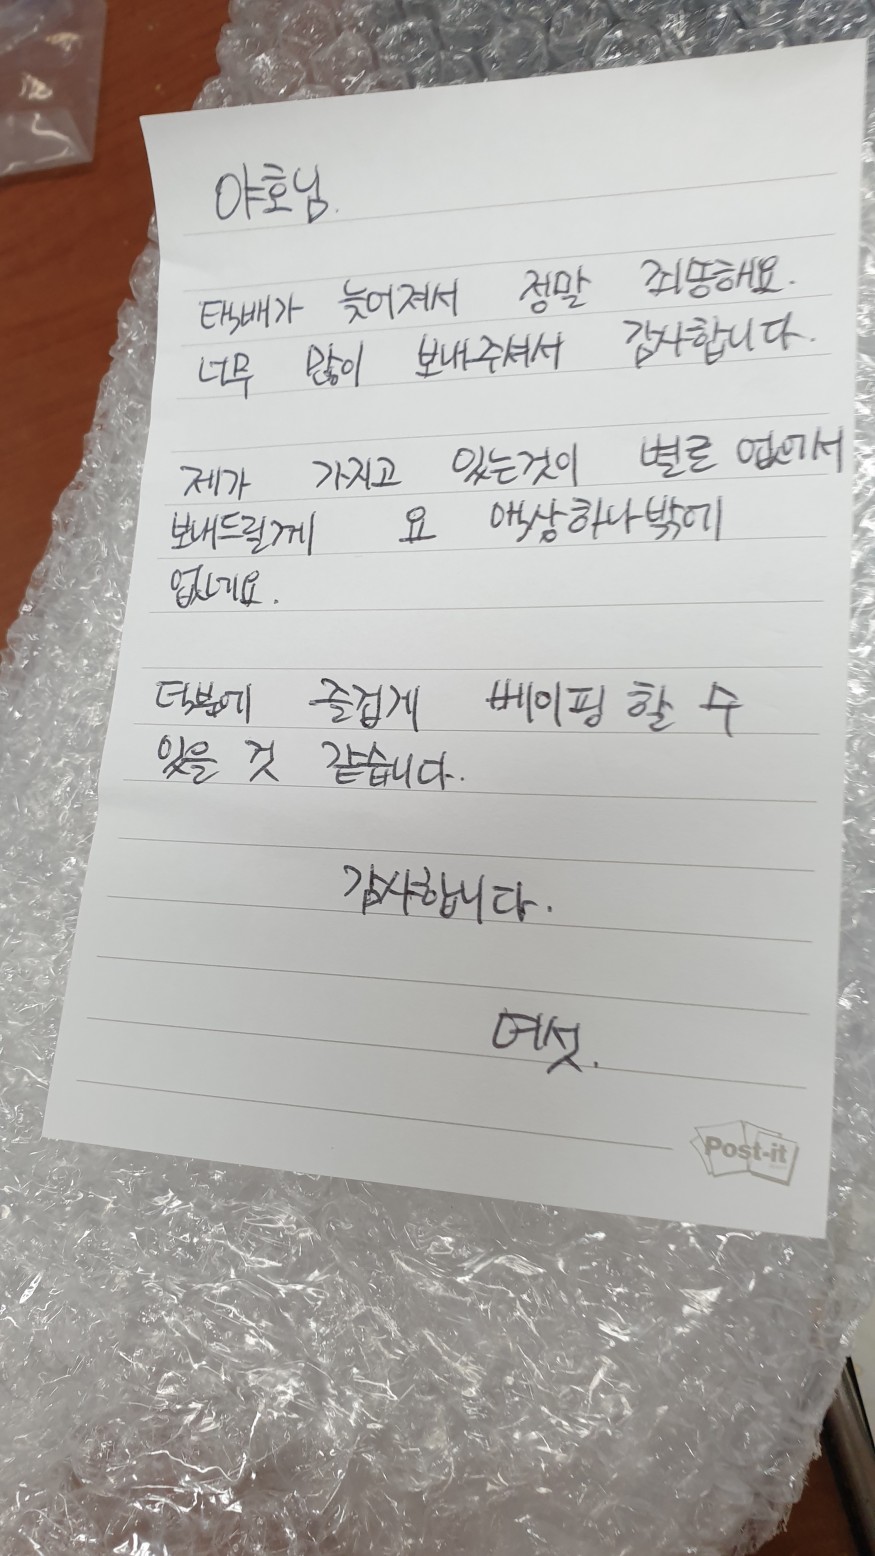 야호님.
택배가 늦어져서 정말 죄송해요.
너무 많이 보내주셔서 감사합니다.
제가 가지고 있는것이 별로 없어서
보내드릴께 요 액상하나밖에
없네요.
덕분에 즐겁게 베이핑 할 수
있을 것 같습니다.
감사합니다.
머섯.
Post-it